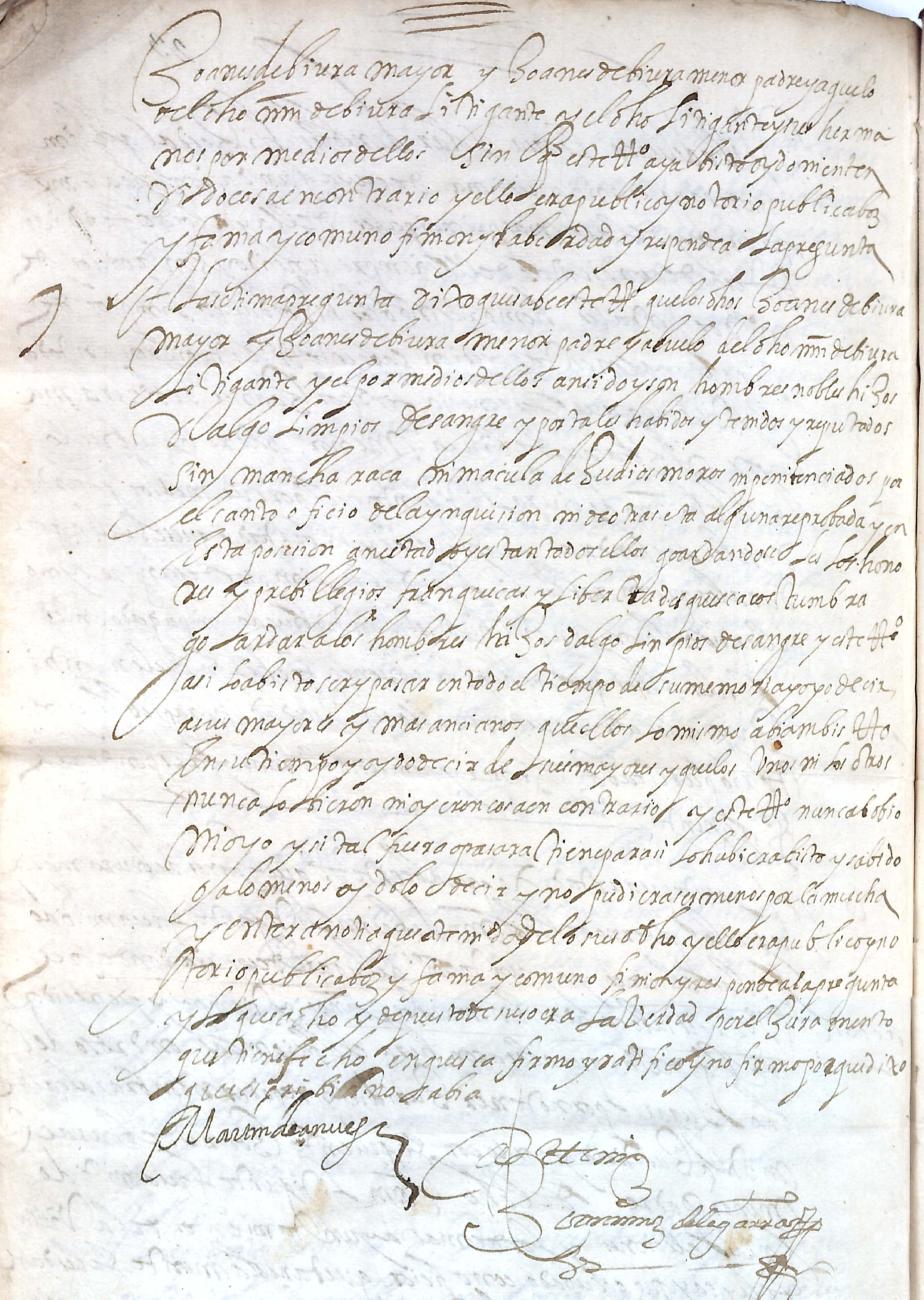 Joanes de biura mayor y Joanes de biura menor padre y aguelo
del dho mrn de biura Litigante y el dho Litigante y sus herma
nos por medio dellos sin q este tt.º aya bisto oydo ni enten
dido cosa en contrario y ello era publico y notorio publica boz
y fama y comun o finion y la berdad y responde a la pregunta
A la setima pregunta dixo que sabe este tt.º que los dhos Joanes de biura
mayor y Joanes de biura menor padre y abuelo del dho mrn de biura
Litigante y el por medio dellos an sido y son hombres nobles hijos
dalgo Limpios de sangre y por tales habidos y tenidos y reputados
sin mancha raca ni macula de Judios moros ni penitenciados por
el santo oficio de la ynquision ni de otra seta alguna reprobada y en
esta posesion an estado y estan todos ellos goardandoseles los hono
res y prebillegios franquecas y libertades que se acostumbra
goardar a los hombres hijos dalgo Linpios de sangre y este tt.º
asi lo a bisto ser y pasar en todo el tiempo de su memoria y oyo decir
a sus mayores y mas ancianos que ellos lo mismo abian bistto
en su tiempo y oydo decir de sus mayores y que los unos ni los otros
nunca lo bieron ni oyeron cosa en contrario y este tt.º nunca lo bio
ni oyo y si tal fuera o pasara tiene para si lo habiera bisto y sabido
o a lo menos oydolo decir y no pudiera ser menos por la mucha
y entera notia que a tenido de lo suso dho y ello era publico y no
torio publica boz y fama y comun o finion y responde a la pregunta
y lo que a dho y depuesto de suso era la verdad por el Juramento
que tiene fecho en que se a firmo y ratifico y no firmo porque dixo
que escribir no sabia
Martin de
Ante mi
Joan mrnz de legarra